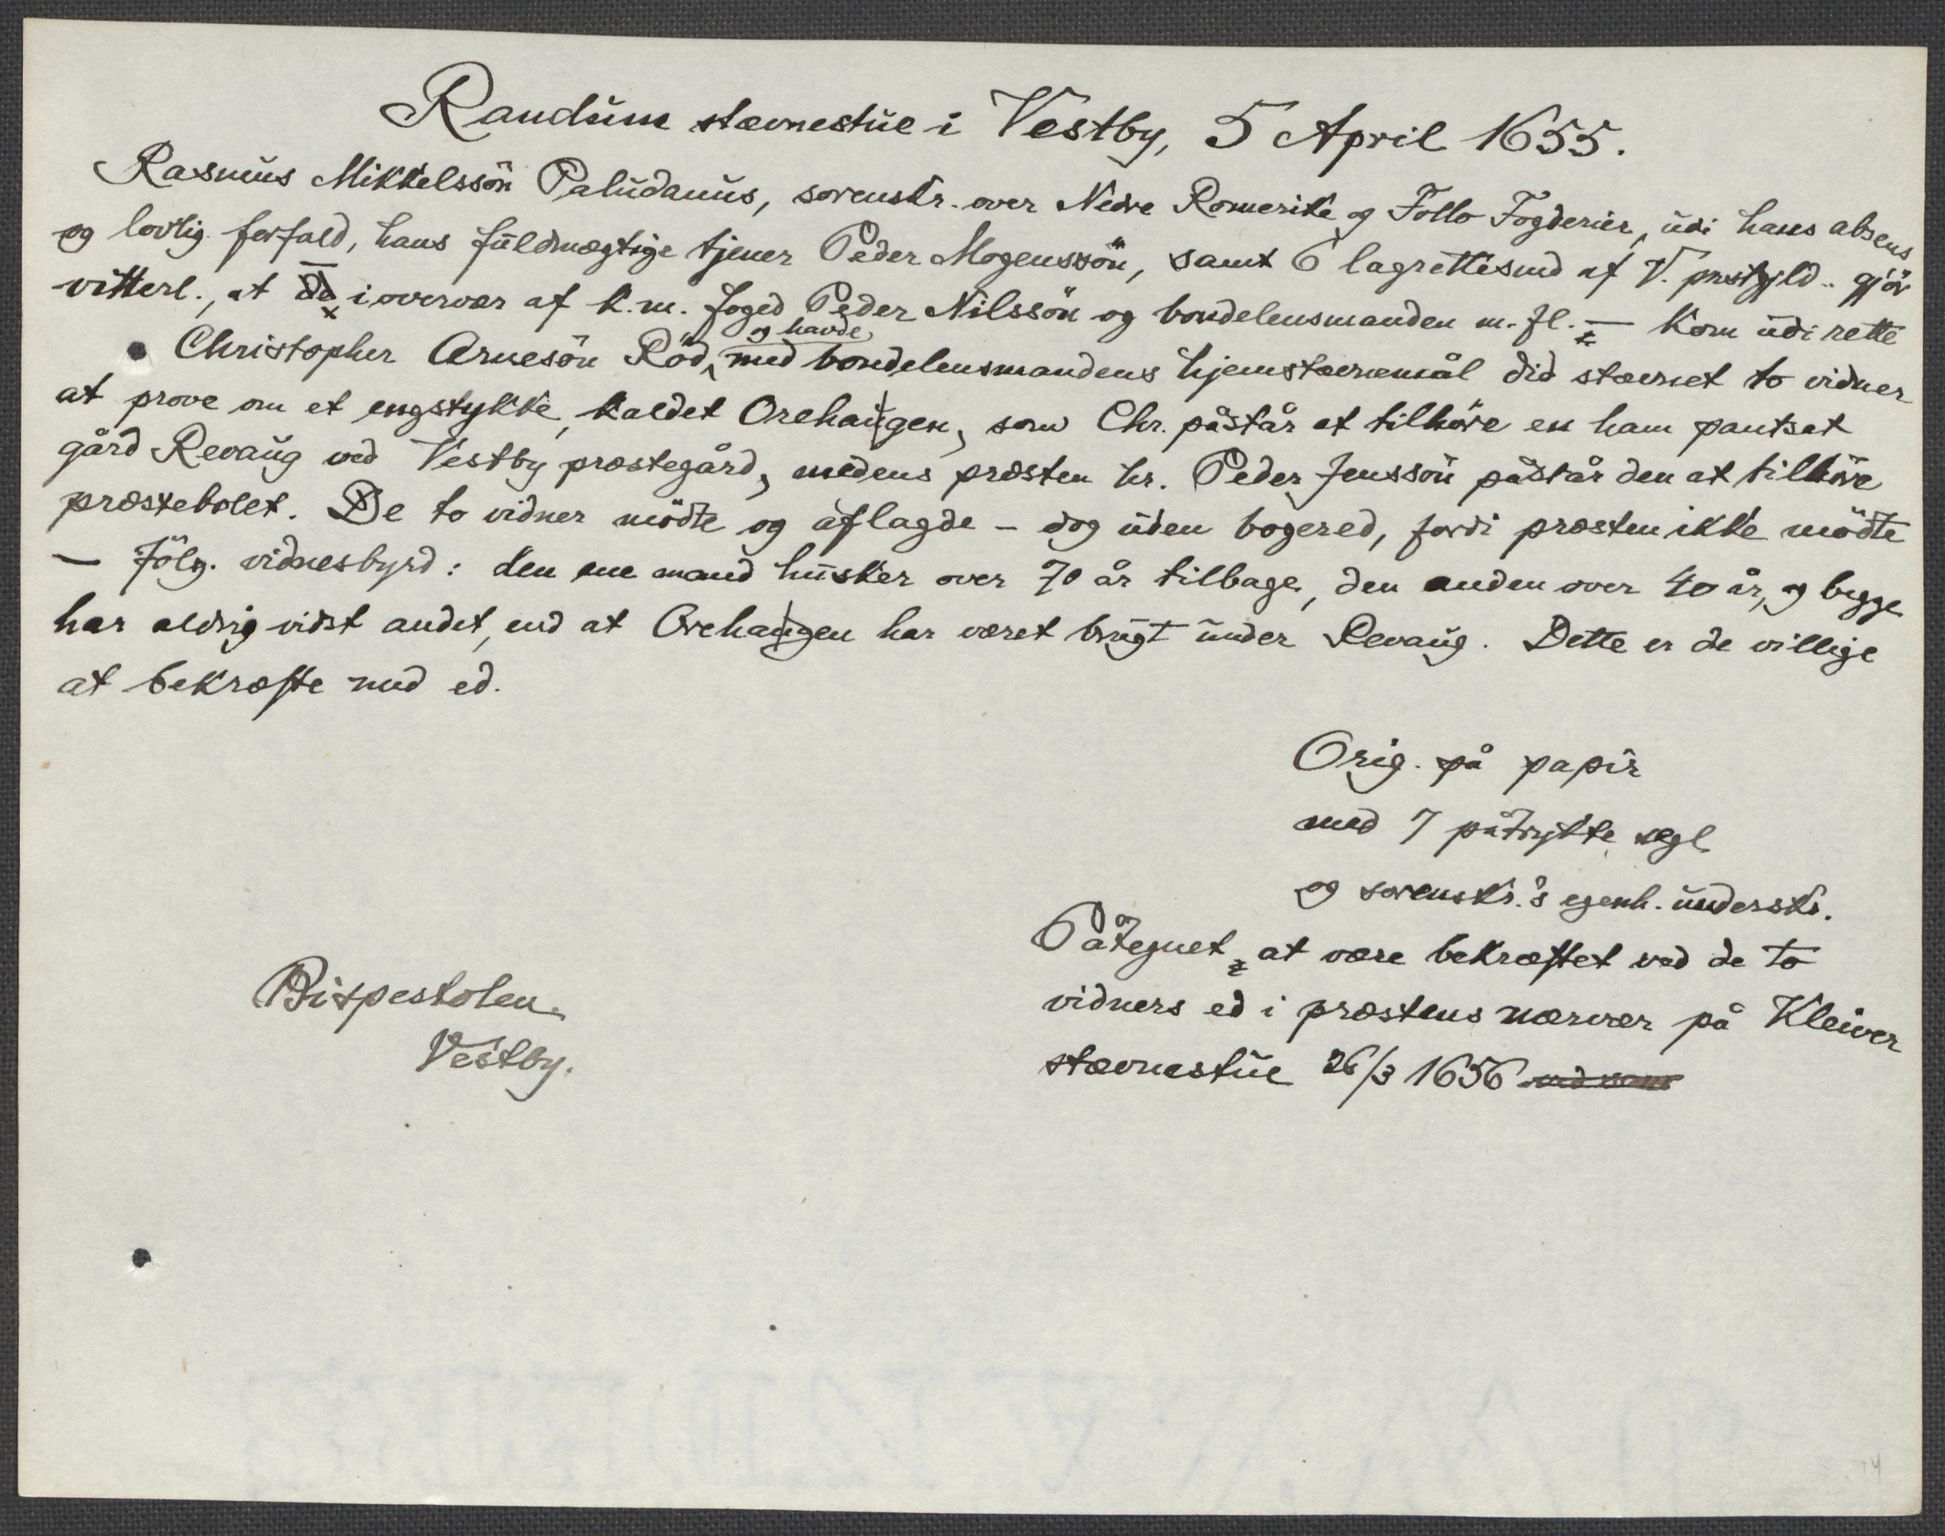 Randum stævnestue i Vestby, 5 April 1655.
Rasmus Mikkelssön Paludanus, sorenskr. over Nedre Romerike og Follo Fogderier, udi hans absens
og lovlig forfald, hans fuldmægtige tjener Peder Mogenssön, samt 6 lagrettesmd af V. prstgjld. gjör
vitterl., at da i overvær af k.m. foged Peder Nilssön og bondelensmanden m. fl. — kom udi rette
Christopher Arnesön Röd, og havde med bondelensmandens hjemstævnemål did stævnet to vidner
at prove om et engstykke, kaldet Orehaugen, som Chr. påstår at tilhöre en ham pantsat
gård Revaug ved Vestby præstegård, medens præsten hr. Peder Jenssön påstår den at tilhöre
præstebolet. De to vidner mödte og aflagde – dog uden bogered, fordi præsten ikke mödte
– fölg. vidnesbyrd: den ene mand husker over 70 år tilbage, den anden over 40 år, og begge
har aldrig vidst andet, end at Orehaugen har været brugt under Revaug. Dette er de villige
at bekræfte med ed.
Orig. på papir
med 7 påtrykte segl
og sorenskr.'s egenh. underskr.
Påtegnet at være bekræftet ved de to
vidners ed i præstens nærvær på Kleiver
stævnestue 26/3 1656
Bispestolen.
Vestby.
14